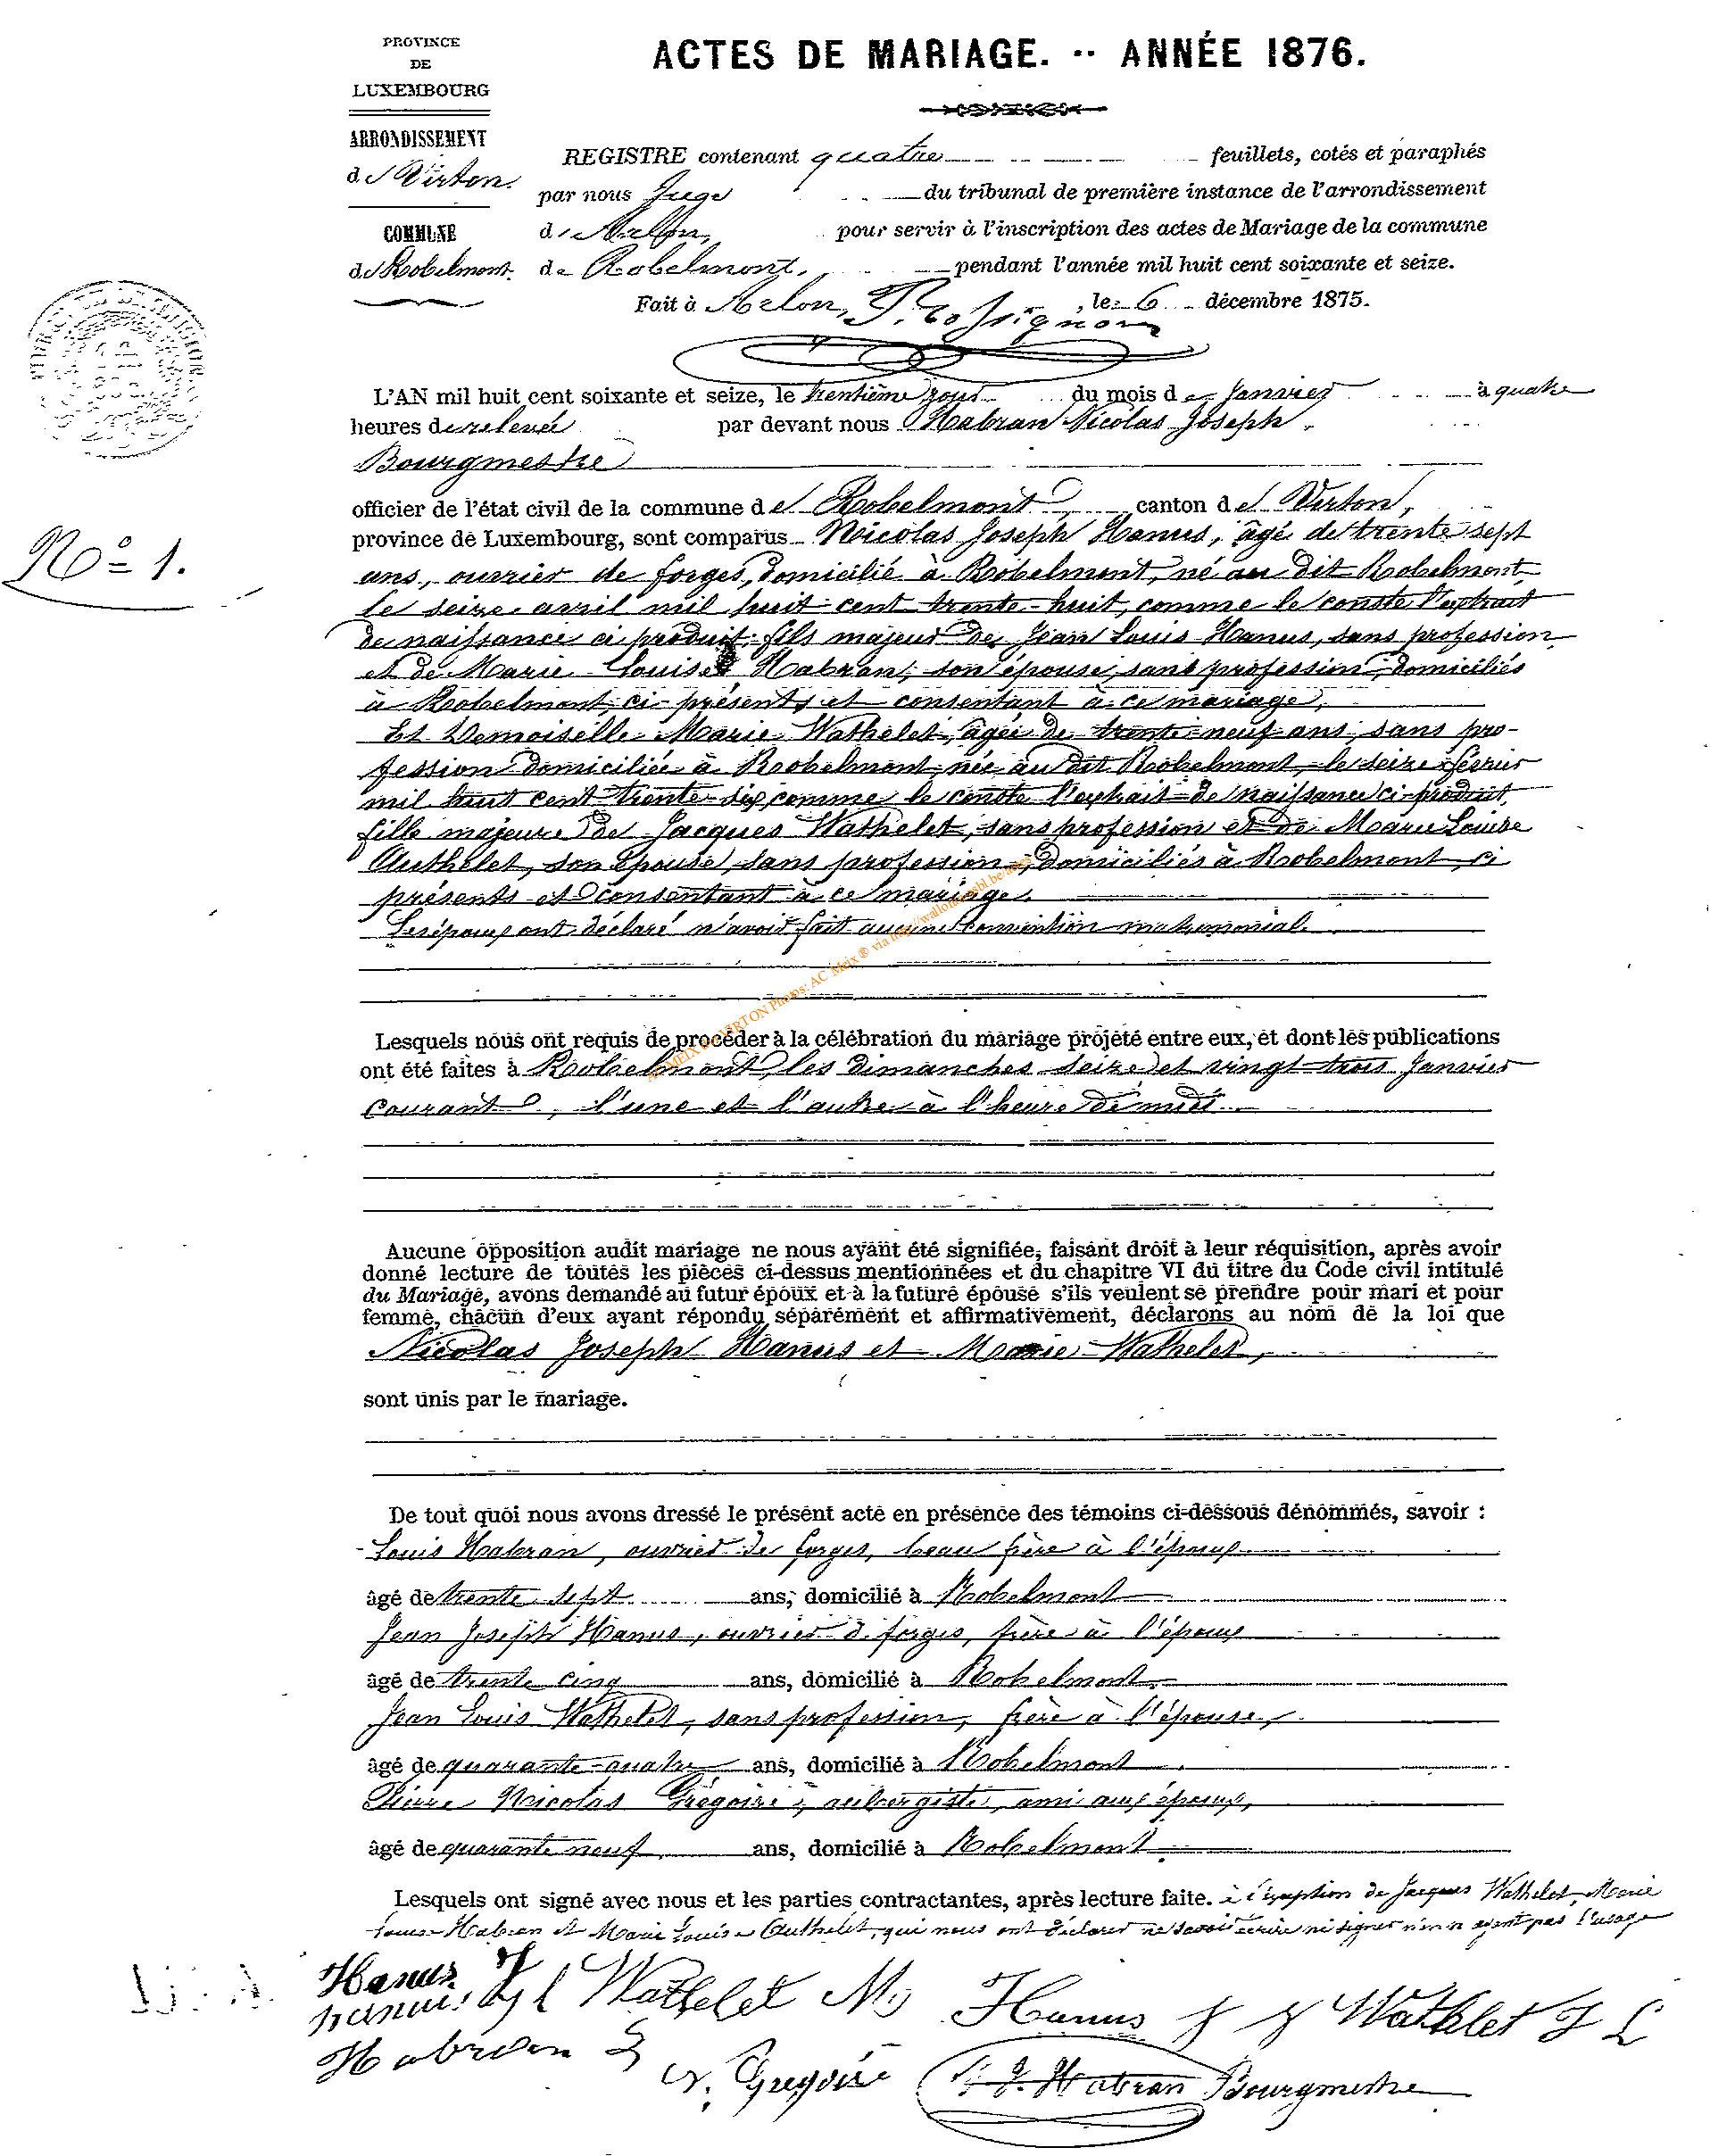 PROVINCE
DE
LUXEMBOURG
ARRONDISSEMENT
de Virton.
COMMUNE
de Robelmont.
ACTES DE MARIAGE. -- ANNÉE 1876.
REGISTRE contenant quatre feuillets, cotés et paraphés
par nous Juge du tribunal de première instance de l'arrondissement
d'Arlon, pour servir à l'inscription des actes de Mariage de la commune
de Robelmont, pendant l'année mil huit cent soixante et seize.
Fait à Arlon, le 6 décembre 1875.
L'AN mil huit cent soixante et seize, le trentième jour du mois de Janvier à quatre
heures de relevée par devant nous Habran Nicolas Joseph
Bourgmestre
officier de l'état civil de la commune de Robelmont, canton de Virton,
province de Luxembourg, sont comparus Nicolas Joseph Hanus, âgé de trente sept
N° 1.
ans, ouvrier de forges, domicilié à Robelmont, né au dit Robelmont
le seize avril mil huit cent trente-huit, comme le conste l'extrait
de naissance ci produit, fils majeur de Jean Louis Hanus, sans profession
et de Marie Louise Habran, son épouse, sans profession, domiciliés
à Robelmont, ci présents et consentant à ce mariage,
Et Demoiselle Marie Wathelet, âgée de trente-neuf ans, sans pro-
fession domiciliée à Robelmont, née au dit Robelmont, le seize février
mil huit cent trente-six, comme le conste l'extrait de naissance ci-produit,
fille majeure de Jacques Wathelet, sans profession et de Marie Louise
Authelet, son épouse, sans profession, domiciliés à Robelmont, ci
présents et consentant à ce mariage.
Les époux ont déclaré n'avoir fait aucune convention matrimonial.
MEIX VIRTON Photos: AC Meix ® via http://
Lesquels nous ont requis de procéder à la célébration du mariage projeté entre eux, et dont les publications
ont été faites à Robelmont, les dimanches seize et vingt-trois Janvier
courant, l'une et l'autre à l'heure de midi.
Aucune opposition audit mariage ne nous ayant été signifiée, faisant droit à leur réquisition, après avoir
donné lecture de toutes les pièces ci-dessus mentionnées et du chapitre VI du titre du Code civil intitulé
du Mariage, avons demandé au futur époux et à la future épouse s'ils veulent se prendre pour mari et pour
femme, chacun d'eux ayant répondu séparément et affirmativement, déclarons au nom de la loi que
Nicolas Joseph Hanus et Marie Wathelet,
sont unis par le mariage.
De tout quoi nous avons dressé le présent acte en présence des témoins ci-dessous dénommés, savoir :
Louis Habran, ouvrier de forges, beau frère à l'époux
âgé de trente sept ans, domicilié à Robelmont
Jean Joseph Hanus, ouvrier d. forges, frère à l'époux
âgé de trente cinq ans, domicilié à Robelmont.
Jean Louis Wathelet, sans profession, frère à l'épouse,
âgé de quarante-quatre ans, domicilié à Robelmont
Pierre Nicolas Grégoire, aubergiste, ami aux époux,
âgé de quarante neuf ans, domicilié à Robelmont
Lesquels ont signé avec nous et les parties contractantes, après lecture faite. à l'exception de Jacques Wathelet, Marie
Louise Habran et Marie Louise Authelet, qui nous ont déclarer ne savoir écrire ni signer n'en n ayant pas l'usage
Hanus. Wathelet M Hanus J J Wathelet J L
Habran L
N. Grégoire N J Habran Bourgmestre